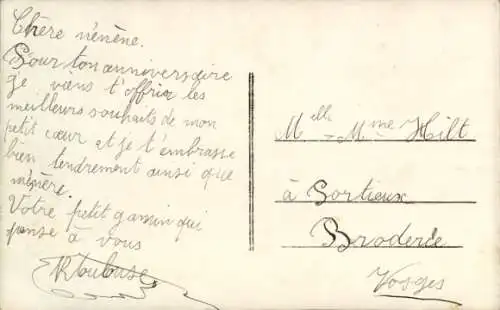 Chère nénène.
Pour ton anniversaire
je viens t'offrir les
meilleurs souhaits de mon
petit cœur et je t'embrasse
bien tendrement ainsi que
mémère.
Votre petit gamin qui
pense à vous
Toulouse
Melle - Mme Hilt
à Portieux
Broderie
Vosges